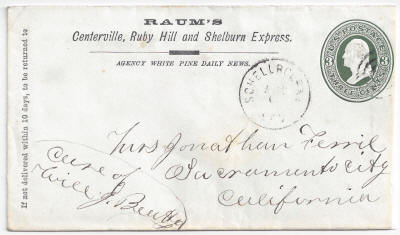 RAUM'S
Centerville, Ruby Hill and Shelburn Express.
AGENCY WHITE PINE DAILY NEWS.
If not delivered within 10 days, to be returned to
U.S. POSTAGE
3 3
THREE CENTS
Mrs Jonathan Ferril
Sacramento City
California
Care of
Will J. Beatty